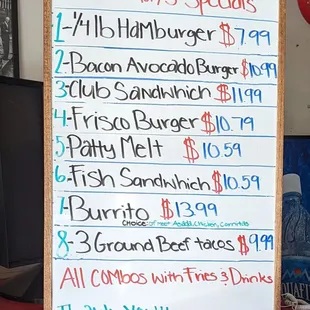 Specials
1-1/4 lb Hamburger $7.99
2-Bacon Avocado Burger $10.99
3-Club Sandwhich $11.99
4-Frisco Burger $10.79
5-Patty Melt $10.59
6-Fish Sandwhich $10.59
7-Burrito $13.99
CHOICE: of meat Asada, Chicken, Carnitas
8-3 Ground Beef tacos $9.99
All combos with Fries & Drinks